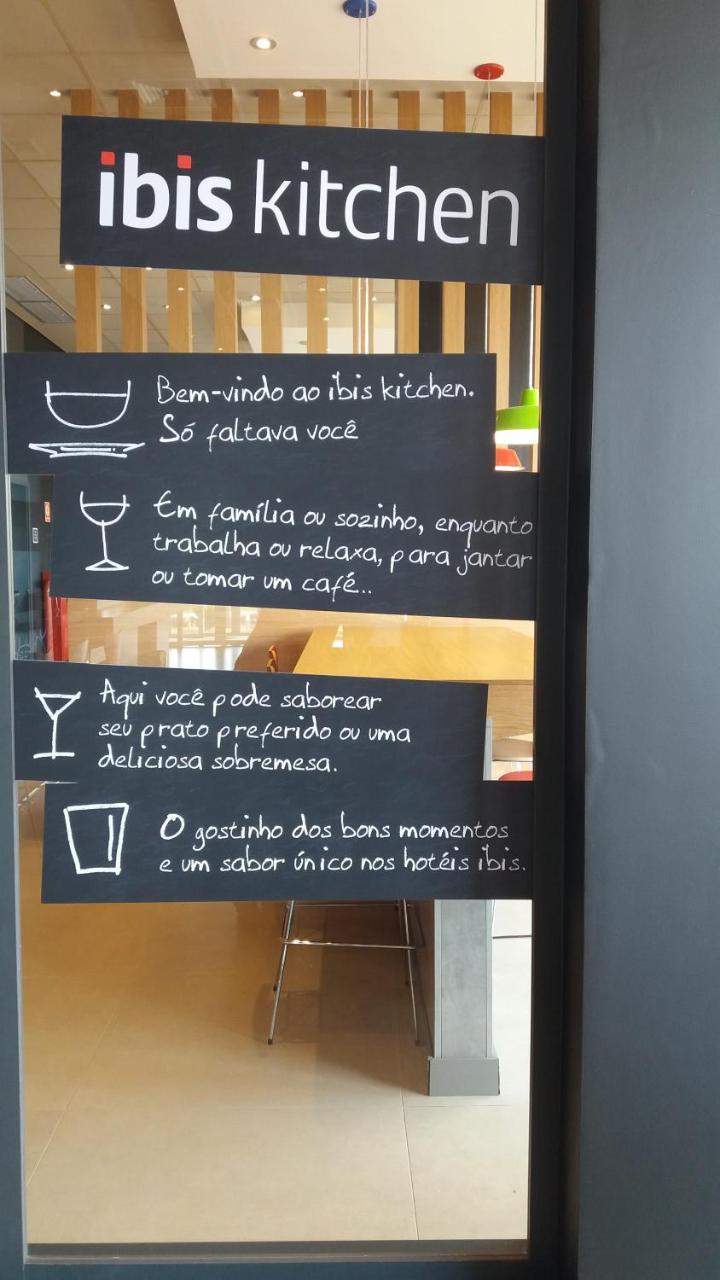 ibis kitchen
Bem-vindo ao ibis kitchen.
Só faltava você
Em família ou sozinho, enquanto
trabalha ou relaxa, para jantar
ou tomar um café..
Aqui você pode saborear
seu prato preferido ou uma
deliciosa sobremesa.
O gostinho dos bons momentos
e um sabor único nos hotéis ibis.